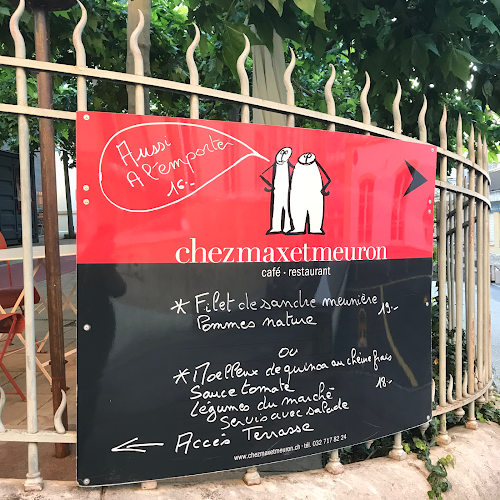 Aussi
A l'emporter
16.-
chezmaxetmeuron
café - restaurant
* Filet de sandre meunière 19.-
Pommes nature
ou
* Moelleux de quinoa au chèvre frais
Sauce tomate 18.-
Légumes du marché
Servis avec salade
← Accès Terrasse
www.chezmaxetmeuron.ch - tél. 032 717 82 24